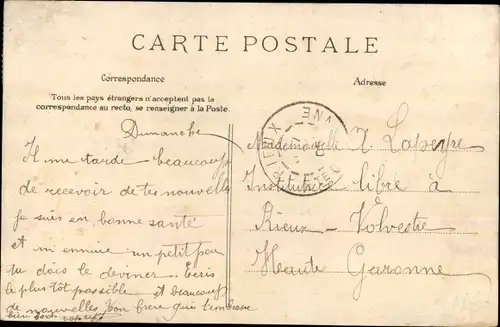 CARTE POSTALE
Correspondance
Adresse
Tous les pays étrangers n'acceptent pas la
correspondance au recto, se renseigner à la Poste.
RIEUX
Dimanche
Il me tarde beaucoup
de recevoir de tes nouvelles
je suis en bonne santé
et m'ennuie un petit peu
tu dois le deviner. Ecris
le plus tôt possible et beaucoup
de nouvelles. Ton frère qui t'embrasse
bien
Mademoiselle J. Lapeyre
Institutrice libre à
Rieux-Volvestre
Haute Garonne